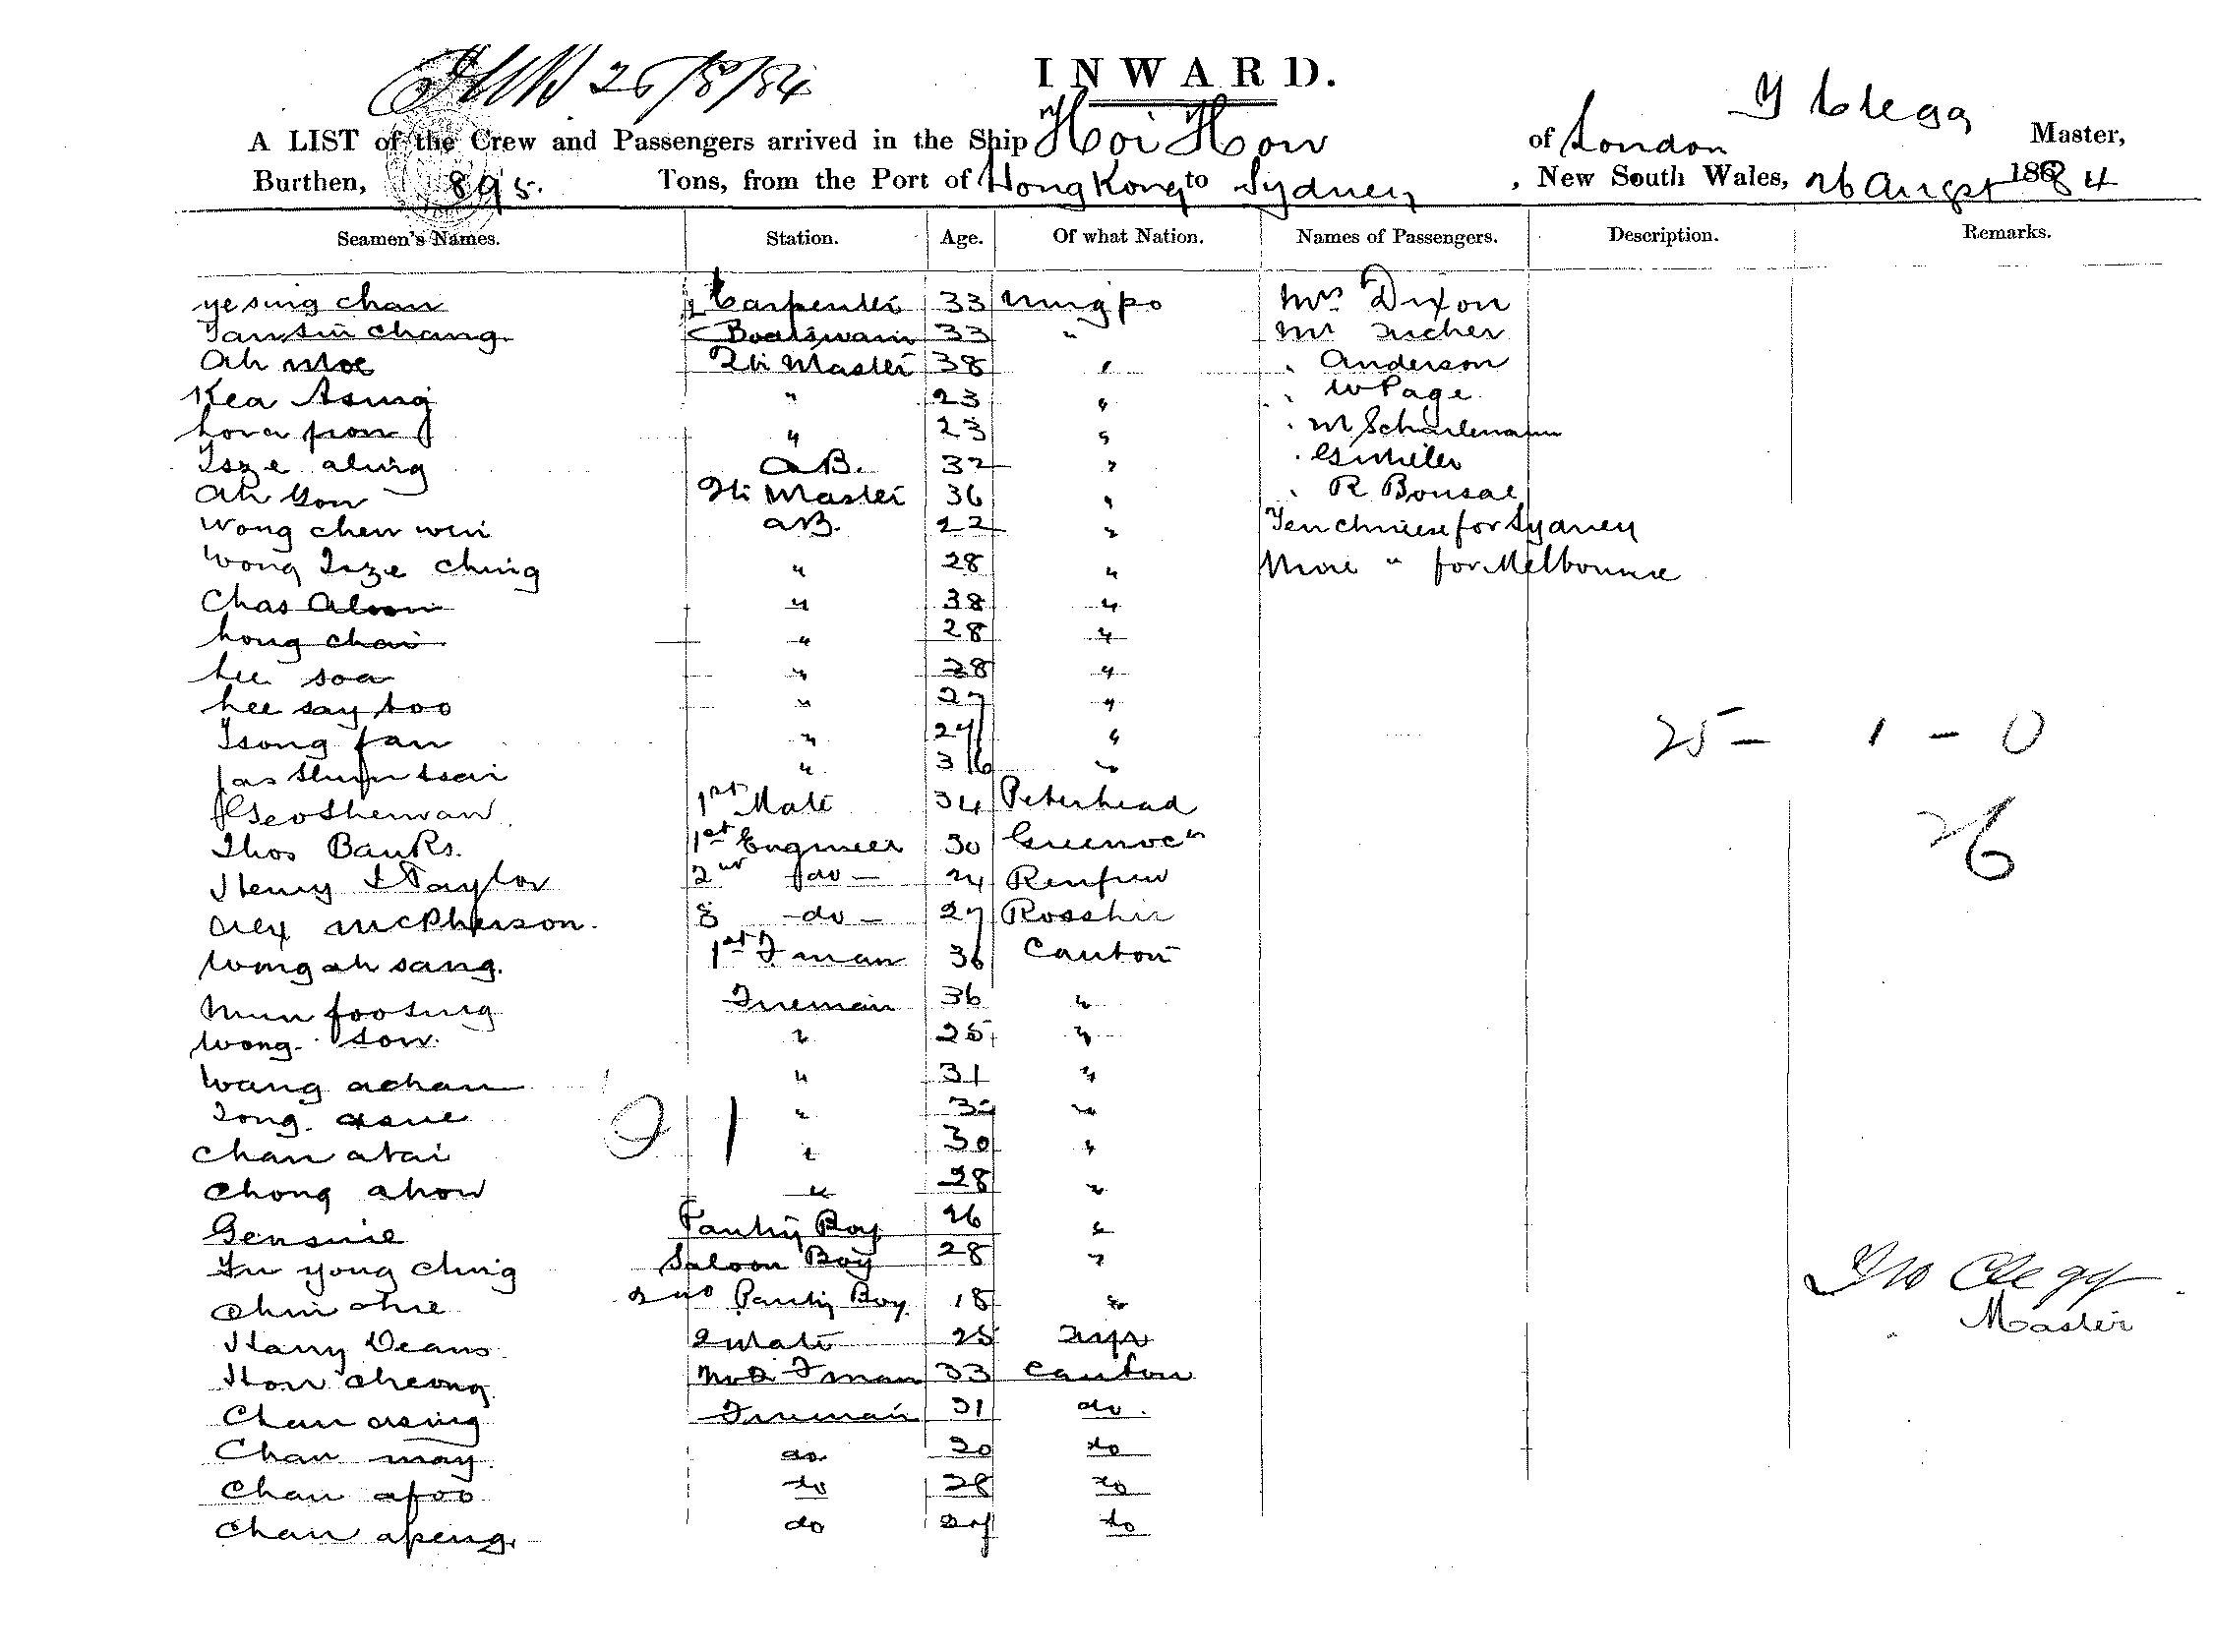 26/8/84
INWARD.
J Clegg
A LIST of the Crew and Passengers arrived in the Ship Hoi How of London Master,
Burthen, 895. Tons, from the Port of Hong Kong to Sydney, New South Wales, 26 Augst 1884
Seamen's Names. Station. Age. Of what Nation. Names of Passengers. Description. Remarks.
yesing chan Carpenter 33 ningpo Mrs Dixon
Boatswain 33 " Mr
Ah Moe Qtr Master 38 " " Anderson
Kea Asing " 23 " " W Page
" 23 " " M
Tsze aling A.B. 32 "
Ah Gow Qtr Master 36 " " R Bonsal
Wong chen wei A.B. 22 " Ten Chinese for Sydney
Wong Tsze Ching " 28 " Nine " for Melbourne
Chas " 38 "
hong chai " 28 "
Lee soa " 38 "
Lee say too " 27 "
Tsong fan " 27 " 25 - 1 - 0
tsai " 36 "
Geo Sherwan 1st Mate 34 Peterhead 26
Thos Banks. 1st Engineer 30 Greenock
Henry Taylor 2nd do - 24 Renfrew
Alex McPherson. 3 - do - 27 Rosshir
Wong ah sang. 1st Fman 36 Canton
Mun foo sing Fireman 36 "
Wong sow. " 25 "
Wang achan " 31 "
Tong asue "  "
Chan atai " 30 "
Chong ahow " 28 "
Gensine Pantry Boy 26 "
yong ching Saloon Boy 28 "
2nd Pantry Boy. 18 " Jno Clegg
Harry Deans 2 Mate 25 Ayr Master
How cheong Fman 33 Canton
Chan asing Fireman 31 do.
Chan may do 30 do
Chan afoo do 28 do
Chan apeng. do 27 do